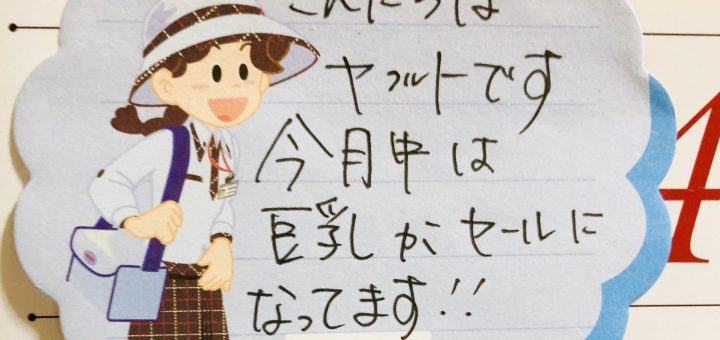 こんにちは
ヤクルトです
今月中は
巨乳が セールに
なってます!!
4